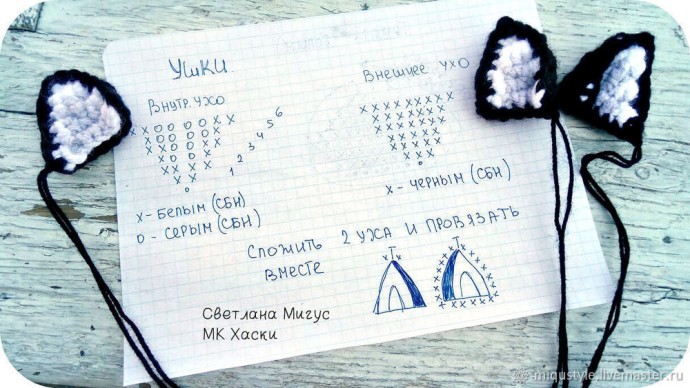 УШКИ.
ВНУТР. УХО
ВНЕШНЕЕ УХО
x x o o o o x x
x x o o o x x
x x o o x x
x o o x
x o x
x x
o
1 2 3 4 5 6
x - БЕЛЫМ (СБН)
o - СЕРЫМ (СБН)
x - ЧЕРНЫМ (СБН)
СЛОЖИТЬ 2 УХА И ПРОВЯЗАТЬ
ВМЕСТЕ
Светлана Мигус
МК Хаски
miqustyle.livemaster.ru